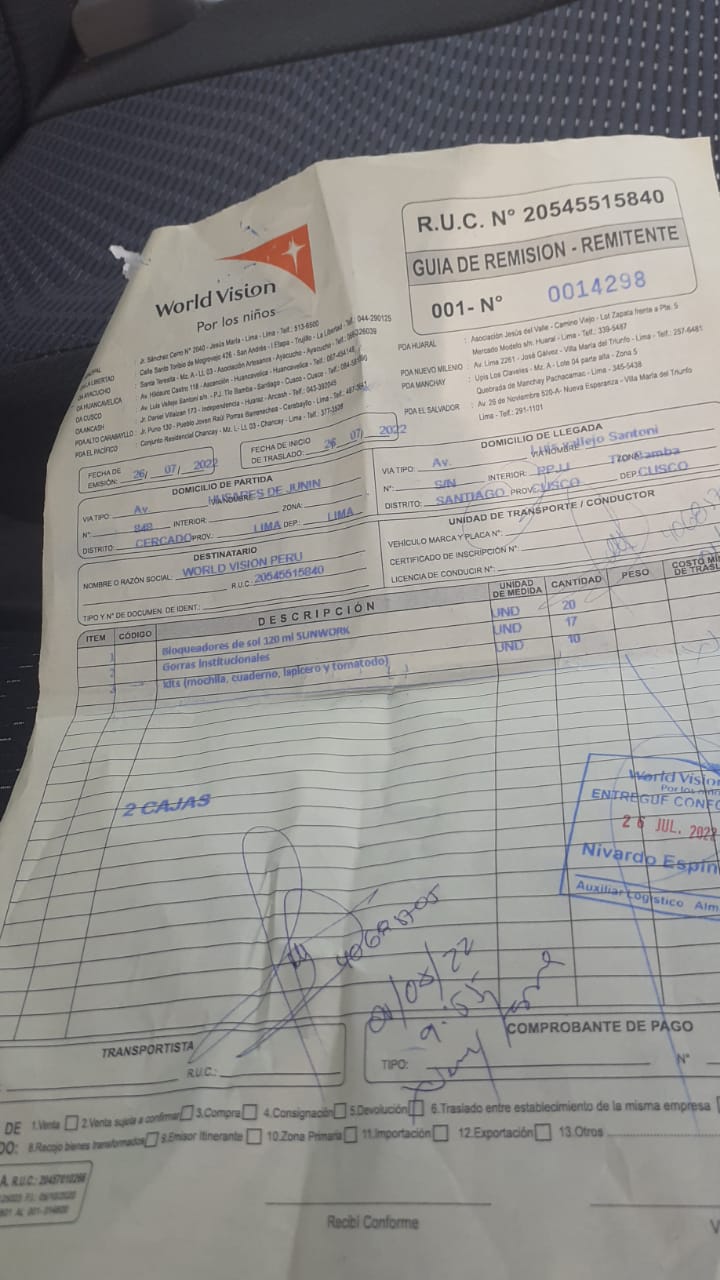 World Vision
Por los niños
R.U.C. N° 20545515840
GUIA DE REMISION - REMITENTE
001- N° 0014298
Jr. Sánchez Cerro N° 2640 - Jesús María - Lima - Lima - Telf.: 513-6500
LIBERTAD : Calle Santo Toribio de Mogrovejo 426 - San Andrés - I Etapa - Trujillo - La Libertad - Telf.: 044-290125
AYACUCHO : Santa Teresita - Mz. A - Lt. 03 - Asociación Artesanos - Ayacucho - Ayacucho
HUANCAVELICA : Av. Hildauro Castro 118 - Ascención - Huancavelica - Huancavelica
CUSCO : Av. Luis Vallejo Santoni s/n. - P.J. Tio Bamba - Santiago - Cusco - Cusco
ANCASH : Jr. Daniel Villaizan 173 - Independencia - Huaraz - Ancash
PDA ALTO CARABAYLLO : Jr. Puno 130 - Pueblo Joven Raúl Porras Barrenechea - Carabayllo - Lima
PDA EL PACÍFICO : Conjunto Residencial Chancay - Mz. L - Lt. 03 - Chancay - Lima
PDA HUARAL : Asociación Jesús del Valle - Camino Viejo - Lot Zapata frente a Pte. 5
Mercado Modelo s/n. Huaral - Lima - Telf.: 339-5487
PDA NUEVO MILENIO : Av. Lima 2261 - José Gálvez - Villa María del Triunfo - Lima - Telf.: 257-6481
PDA MANCHAY : Upis Los Claveles - Mz. A - Lote 04 parte alta - Zona 5
Quebrada de Manchay Pachacamac - Lima - 345-5438
PDA EL SALVADOR : Av. 26 de Noviembre 520-A- Nueva Esperanza - Villa María del Triunfo
Lima - Telf.: 291-1101
FECHA DE EMISIÓN: 26/ 07/ 2022
FECHA DE INICIO DE TRASLADO: 26 07 / 2022
DOMICILIO DE PARTIDA
VIA TIPO: Av. VIA NOMBRE: HUSARES DE JUNIN
N°: 848 INTERIOR: ZONA:
DISTRITO: CERCADO PROV.: LIMA DEP.: LIMA
DOMICILIO DE LLEGADA
VIA TIPO: Av. VIA NOMBRE: Luis Vallejo Santoni
N°: S/N INTERIOR: PP.JJ ZONA:
DISTRITO: SANTIAGO PROV. CUSCO DEP. CUSCO
DESTINATARIO
NOMBRE O RAZÓN SOCIAL: WORLD VISION PERU
R.U.C. 20545515840
TIPO Y N° DE DOCUMEN. DE IDENT.:
UNIDAD DE TRANSPORTE / CONDUCTOR
VEHÍCULO MARCA Y PLACA N°:
CERTIFICADO DE INSCRIPCIÓN N°:
LICENCIA DE CONDUCIR N°:
ITEM CÓDIGO DESCRIPCIÓN UNIDAD DE MEDIDA CANTIDAD PESO COSTO
1 Bloqueadores de sol 120 ml SUNWORK UND 20
2 Gorras Institucionales UND 17
3 kits (mochila, cuaderno, lapicero y tomatodo) UND 10
2 CAJAS
World Vision
Por los
ENTREGUE
26 JUL. 2022
Nivardo
Auxiliar Logístico
22
TRANSPORTISTA
R.U.C.:
COMPROBANTE DE PAGO
TIPO: N°
DE 1.Venta 2.Venta sujeta a confirmar 3.Compra 4.Consignación 5.Devolución 6.Traslado entre establecimiento de la misma empresa
8.Recojo bienes transformados 9.Emisor Itinerante 10.Zona Primaria 11.Importación 12.Exportación 13.Otros
Recibí Conforme